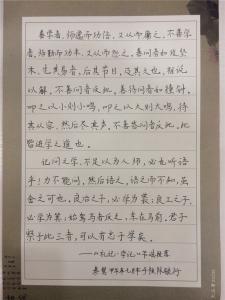 善学者，师逸而功倍，又从而庸之。不善学
者，师勤而功半，又从而怨之。善问者如攻坚
木，先其易者，后其节目，及其久也，相说
以解。不善问者反此。善待问者如撞钟，
叩之以小则小鸣，叩之以大则大鸣，待
其从容，然后尽其声。不善答问者反此。此
皆进学之道也。
记问之学，不足以为人师，必也听语
乎！力不能问，然后语之，语之而不知，虽
舍之可也。良冶之子，必学为裘；良弓之子，
必学为箕；始驾马者反之，车在马前。君子
察于此三者，可以有志于学矣。
——《礼记·学记》